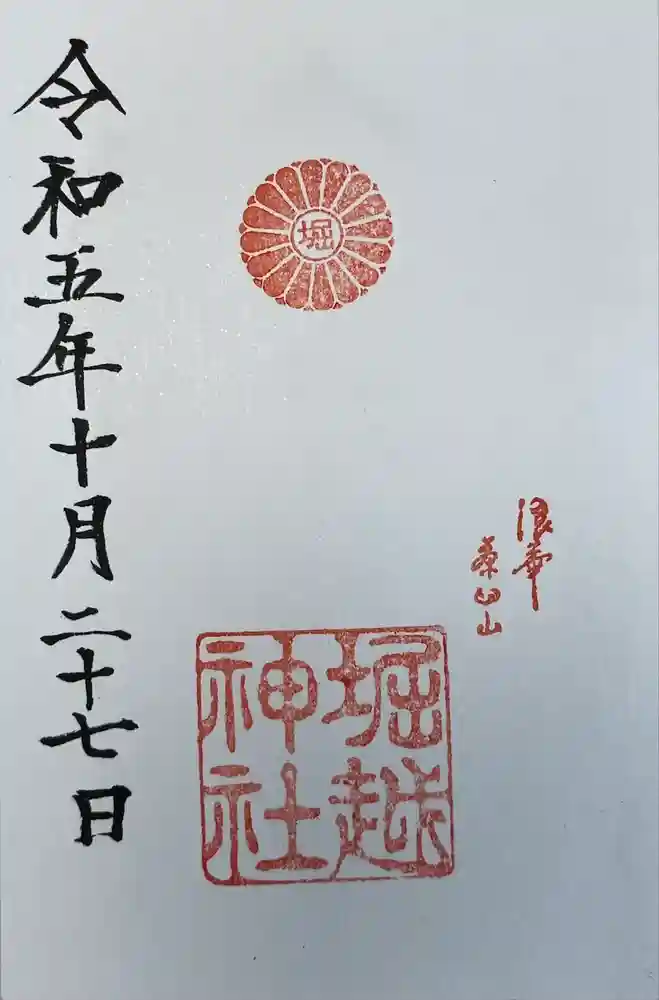 浪華
茶臼山
堀
堀越
神社
令和五年十月二十七日